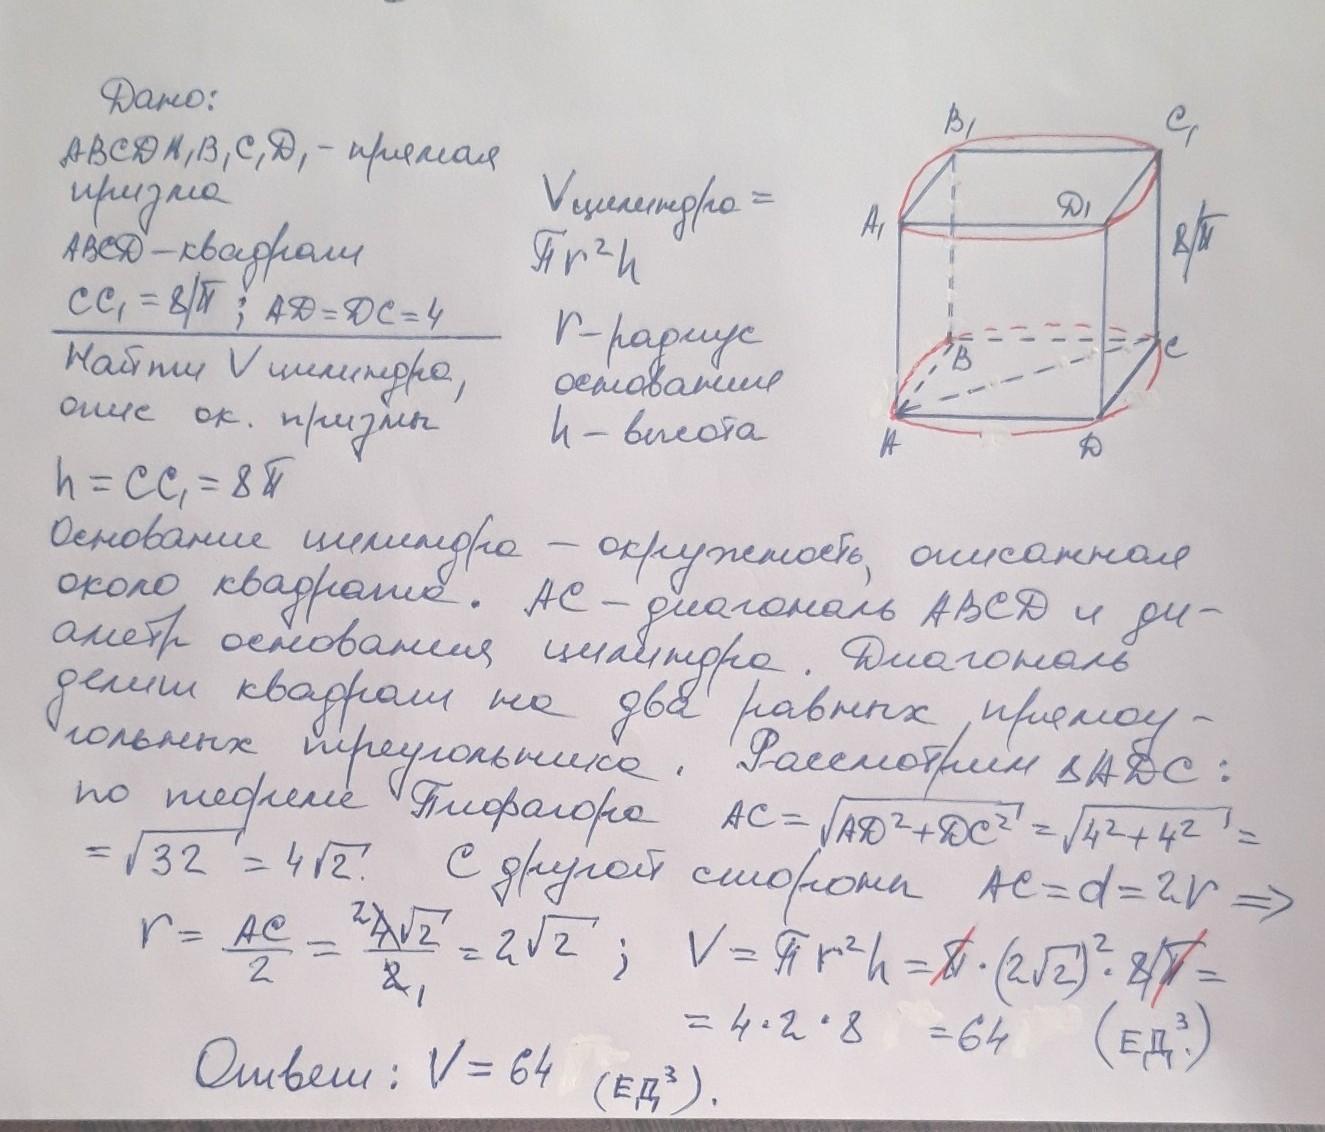 Дано:
ABCDA₁B₁C₁D₁ - прямая
призма
ABCD - квадрат
CC₁ = 8/π ; AD = DC = 4
Найти V цилиндра,
опис ок. призмы
V цилиндра =
πr²h
r - радиус
основания
h - высота
B₁
C₁
A₁
D₁
8/π
B
C
A
D
h = CC₁ = 8π
Основание цилиндра - окружность, описанная
около квадрата. AC - диагональ ABCD и ди-
аметр основания цилиндра. Диагональ
делит квадрат на два равных прямоу-
гольных треугольника. Рассмотрим ΔADC:
по теореме Пифагора AC = √AD² + DC² = √4² + 4² =
= √32 = 4√2. С другой стороны AC = d = 2r ⇒
r = AC/2 = 4√2/2 = 2√2 ; V = πr²h = π · (2√2)² · 8/π =
= 4 · 2 · 8 = 64 (ЕД.³)
Ответ: V = 64 (ЕД³).